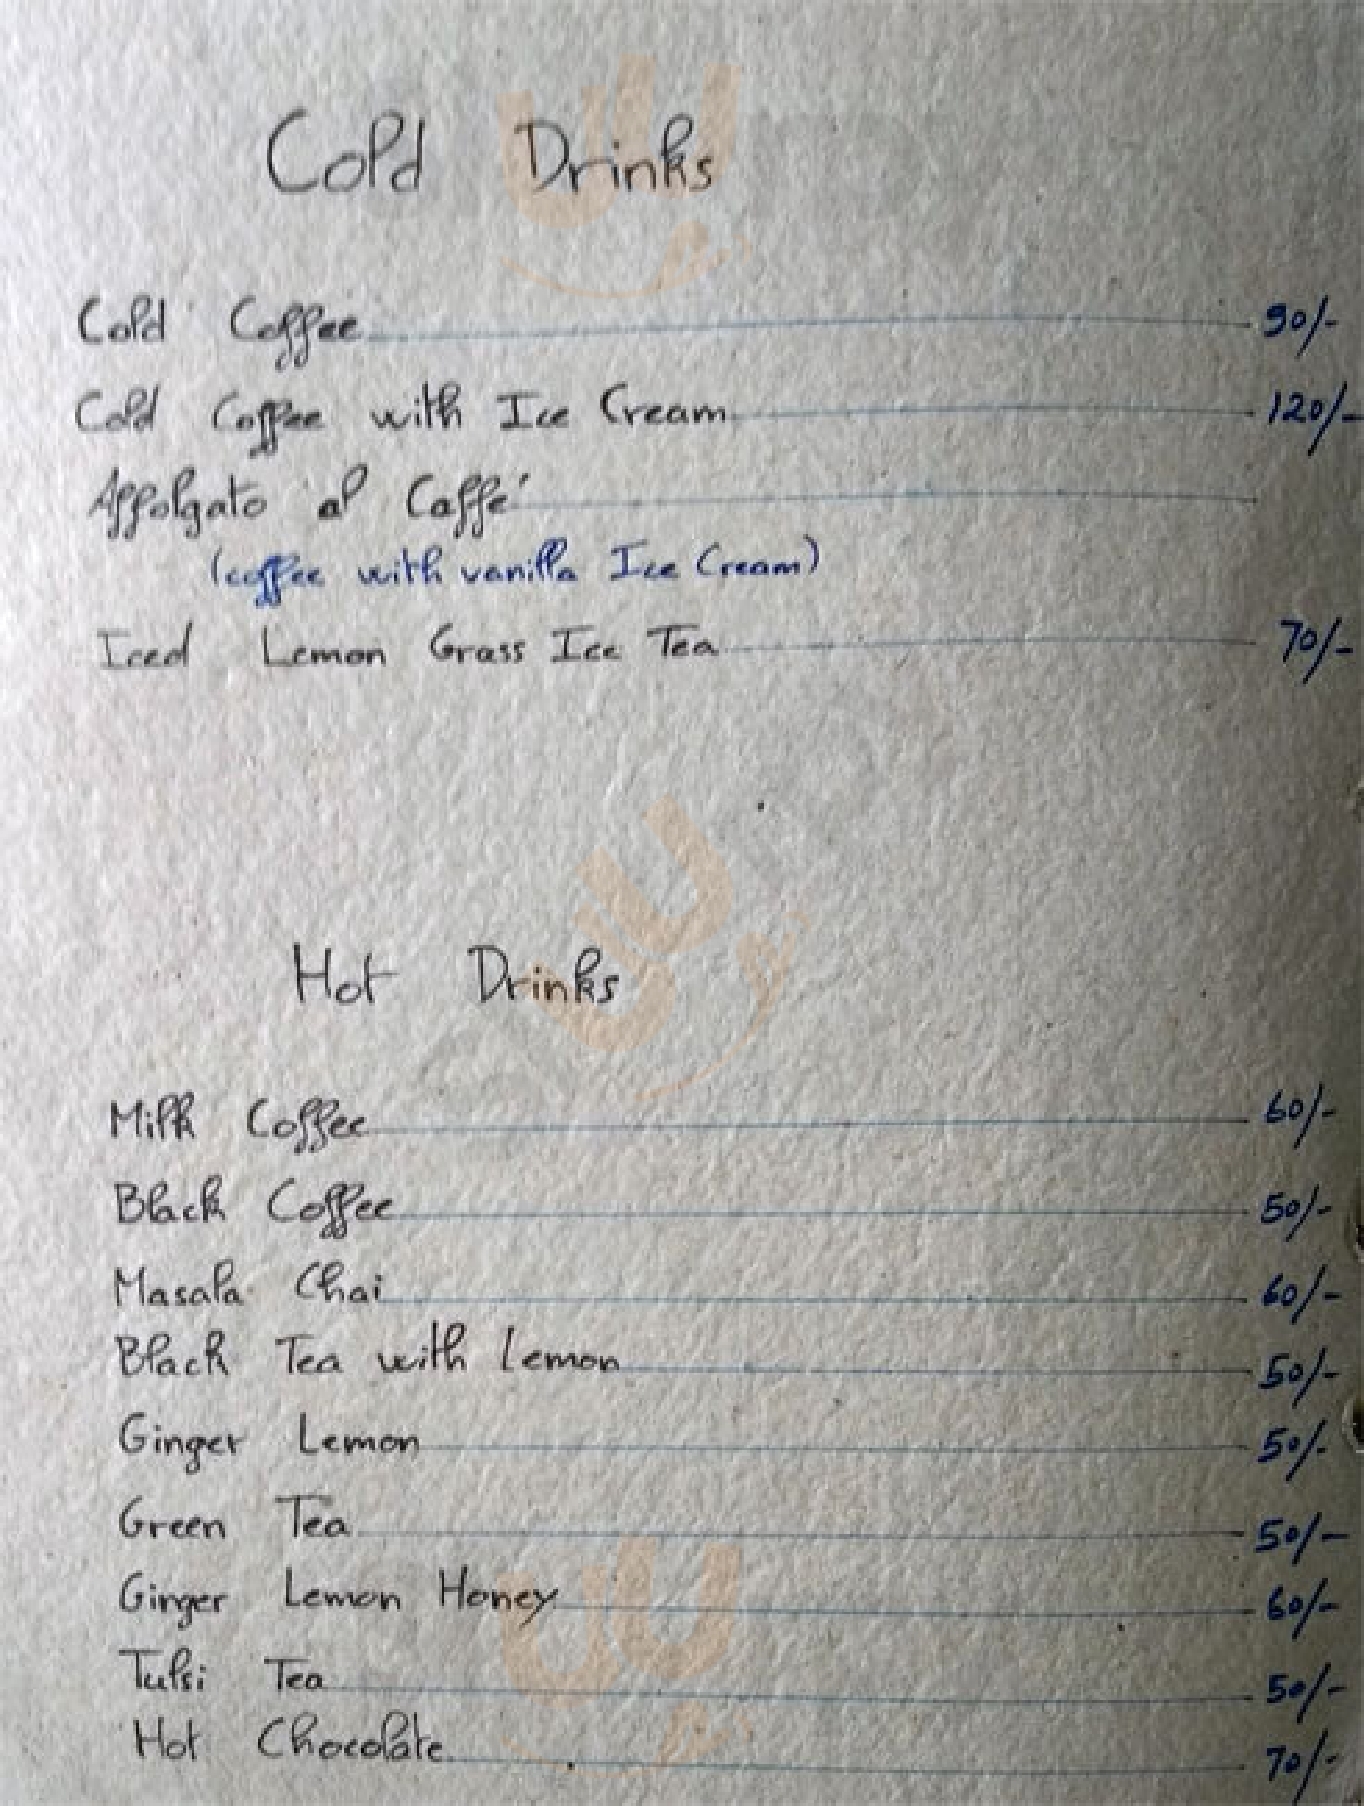 Cold Drinks
Cold Coffee 90/-
Cold Coffee with Ice Cream 120/-
Affolgato al Caffé
(coffee with vanilla Ice Cream)
Iced Lemon Grass Ice Tea 70/-
Hot Drinks
Milk Coffee 60/-
Black Coffee 50/-
Masala Chai 60/-
Black Tea with Lemon 50/-
Ginger Lemon 50/-
Green Tea 50/-
Ginger Lemon Honey 60/-
Tulsi Tea 50/-
Hot Chocolate 70/-